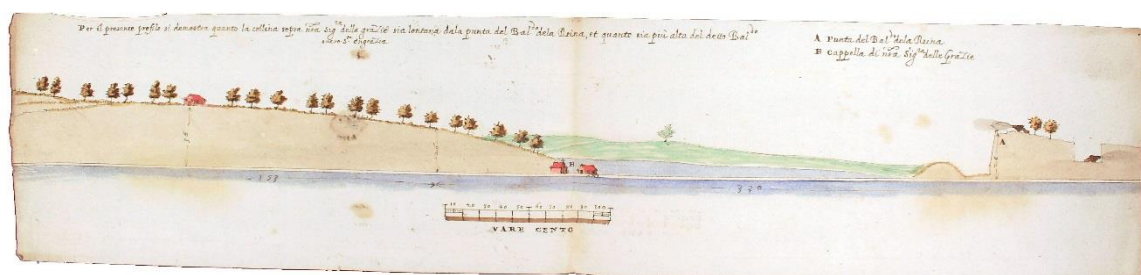 Per il presente profilo si demostra quanto la collina sopra nr̃a Sig.ra delle grazie sia lontana dala punta del Bal.do dela Reina, et quanto sia più alta del detto Bal.do
A Punta del Bal.do dela Reina
B Cappella di nr̃a Sig.ra delle Grazie
A
B
353
330
10 20 30 40 50 60 70 80 90 100
VARE CENTO